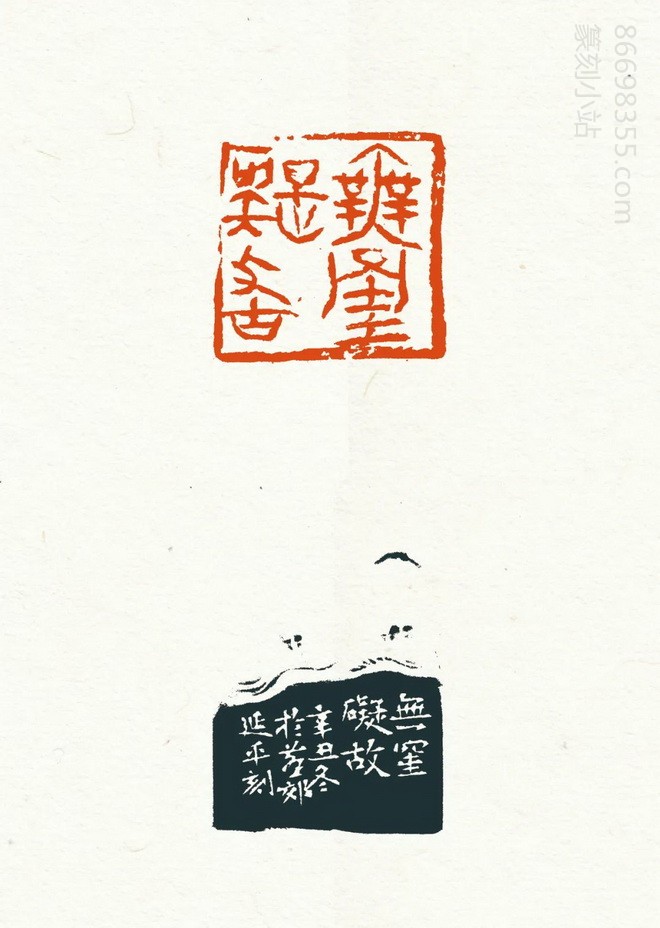 86698355.com
篆刻小站
無罣
礙故
無罣
礙故
辛丑冬
於郊
延平刻